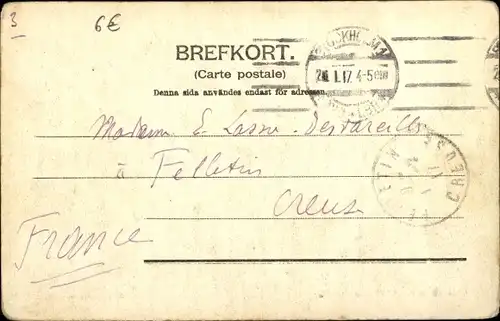 3
6€
BREFKORT.
(Carte postale)
Denna sida användes endast för adressen.
STOCKHOLM 1
1.17. 4-5
Madame E.
à Felletin
Creuse
France
CREUSE